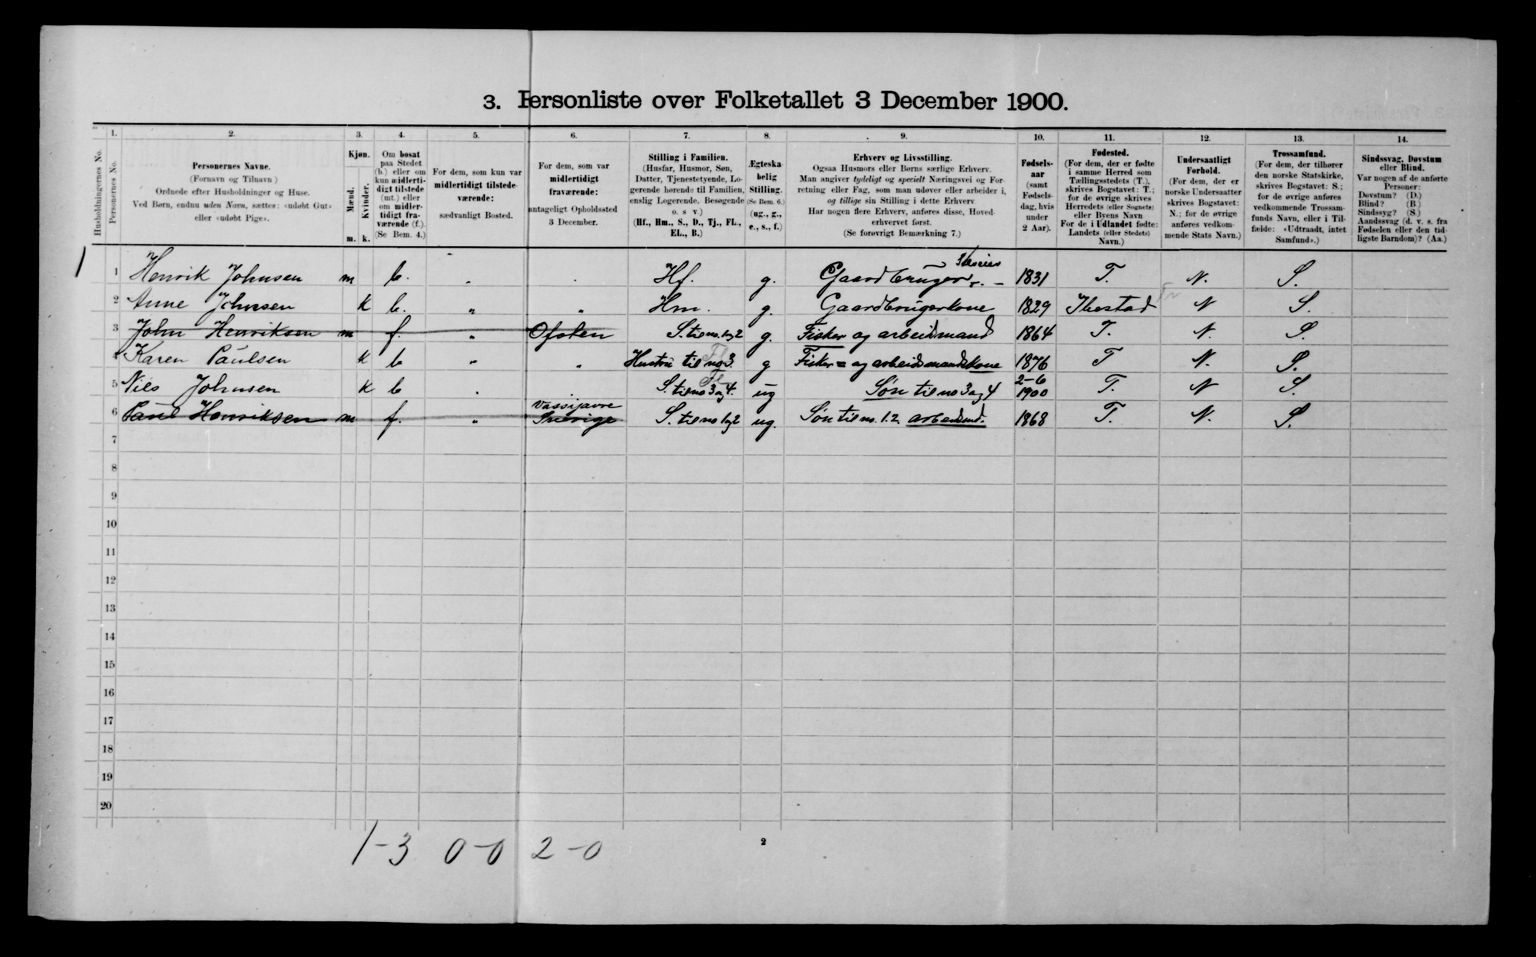 3. Personliste over Folketallet 3 December 1900.
1. 2. 3. 4. 5. 6. 7. 8. 9. 10. 11. 12. 13. 14.
Husholdningernes No.
Personernes No.
Personernes Navne.
(Fornavn og Tilnavn.)
Ordnede efter Husholdninger og Huse.
Ved Børn, endnu uden Navn, sættes: «udøbt Gut»
eller «udøbt Pige».
Kjøn.
Mænd.
Kvinder.
m. k.
Om bosat
paa Stedet
(b.) eller om
kun midlerti-
digt tilstede
(mt.) eller
om midler-
tidigt fra-
værende (f.).
(Se Bem. 4.)
For dem, som kun var
midlertidigt tilstede-
værende:
sædvanligt Bosted.
For dem, som var
midlertidigt
fraværende:
antageligt Opholdssted
3 December.
Stilling i Familien.
(Husfar, Husmor, Søn,
Datter, Tjenestetyende, Lo-
gerende hørende til Familien,
enslig Logerende, Besøgende
o. s. v.)
(Hf., Hm., S., D., Tj., FL.,
EL., B.)
Ægteska-
belig
Stilling.
(Se Bem. 6.)
(ug., g.,
e., s., f.)
Erhverv og Livsstilling.
Ogsaa Husmors eller Børns særlige Erhverv.
Man angiver tydeligt og specielt Næringsvei og For-
retning eller Fag, som man udøver eller arbeider i,
og tillige sin Stilling i dette Erhverv.
Har nogen flere Erhverv, anføres disse, Hoved-
erhvervet først.
(Se forøvrigt Bemærkning 7.)
Fødsels-
aar
(samt
Fødsels-
dag, hvis
under
2 Aar).
Fødested.
(For dem, der er fødte
i samme Herred som
Tællingsstedets (T.),
skrives Bogstavet: T.;
for de øvrige skrives
Herredets (eller Sognets)
eller Byens Navn
For de i Udlandet fødte:
Landets (eller Stedets)
Navn.)
Undersaatligt
Forhold.
(For dem, der er
norske Undersaatter
skrives Bogstavet:
N.; for de øvrige
anføres vedkom-
mende Stats Navn.)
Trossamfund.
(For dem, der tilhører
den norske Statskirke,
skrives Bogstavet: S.;
for de øvrige anføres
vedkommende Trossam-
funds Navn, eller i Til-
fælde: «Udtraadt, intet
Samfund».)
Sindssvag, Døvstum
eller Blind.
Var nogen af de anførte
Personer:
Døvstum? (D.)
Blind? (B.)
Sindssyg? (S.)
Aandssvag (d. v. s. fra
Fødselen eller den tid-
ligste Barndom)? (Aa.)
1 1 Henrik Johnsen m b. Hf. g. Gaardbruger. 1831 T. N. S.
2 Anne Johnsen k b. " " Hm. g. Gaardbrugerkone 1829 Ibestad N S.
3 John Henriksen m f. " Ofoten S. til no. 1og2 g. Fisker og arbeidsmand 1864 T. N. S.
4 Karen Paulsen k b " " Hustru til no 3. g Fisker= og arbeidsmandskone 1876 T N. S.
5 Nils Johnsen k b S. til no 3 og 4. ug Søn til no 3 og 4 2-6 1900 T. N S.
Vassijavre
6 Paul Henriksen m f. " Sverige S. til no 1og2 ug. Søn til no. 1. 2. arbeidsmd. 1868 T. N. S.
7
8
9
10
11
12
13
14
15
16
17
18
19
20
1-3 0-0 2-0
2